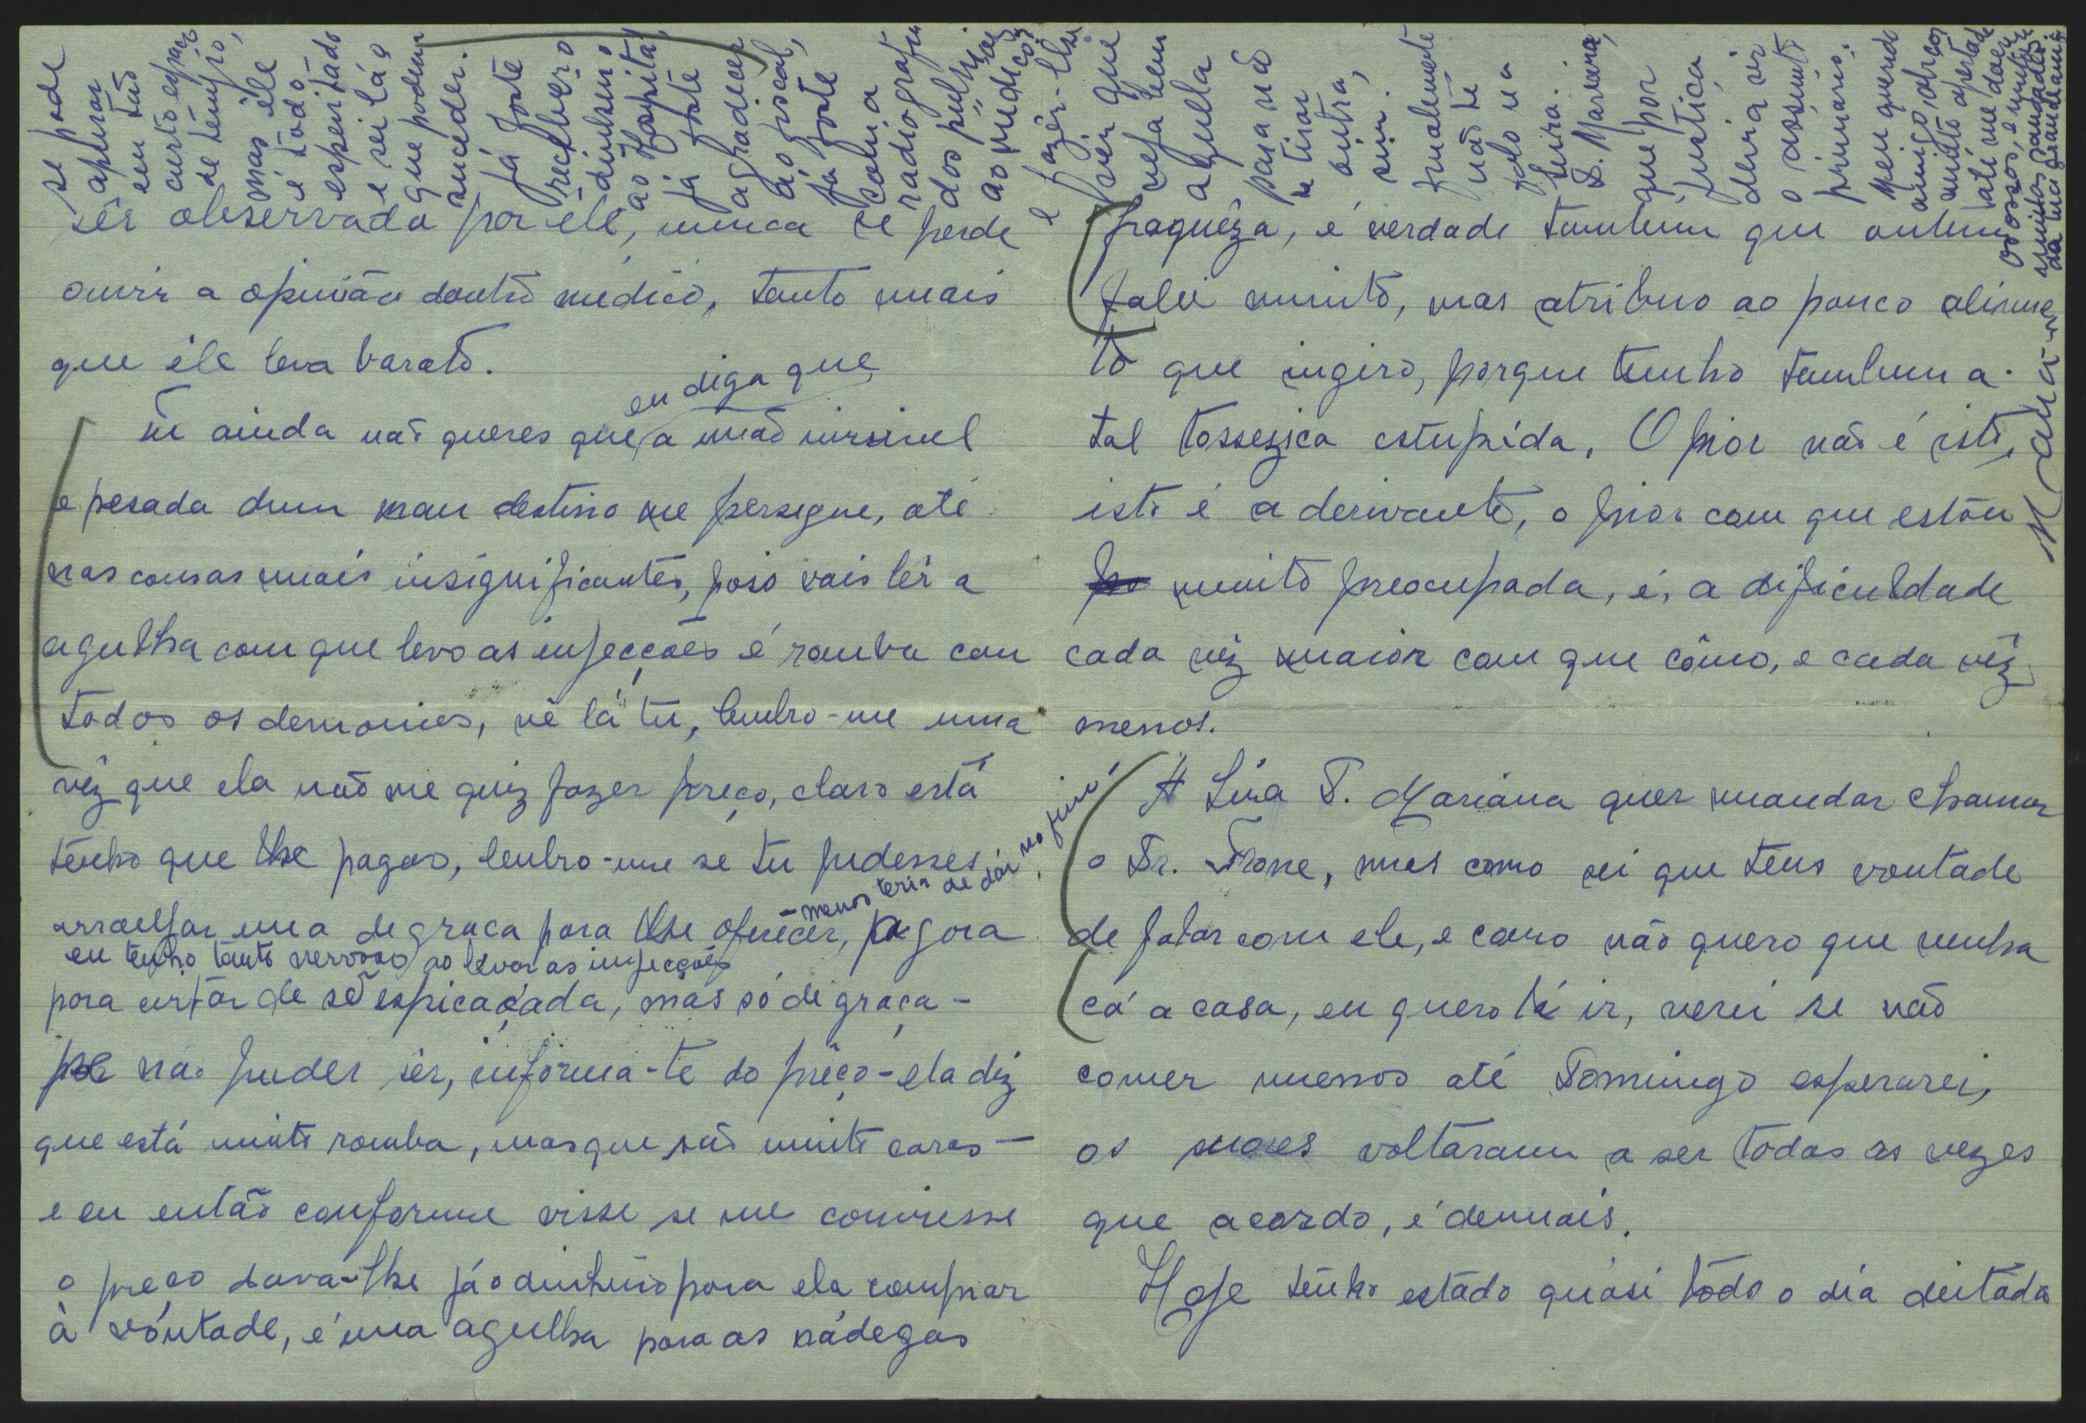 sêr observada por êle, nunca se perde
ouvir a opinião doutro médico, tanto mais
que êle leva barato.
Tu ainda não queres que eu diga que a mão invisivel
e pesada dum mau destino me persegue, até
nas cousas mais insignificantes, pois vais lêr a
agulha com que levo as injecções é romba com
todos os demonios, vê lá tu, lembro-me uma
vêz que ela não me quiz fazer preço, claro está
tenho que lhe pagar, lembro-me se tu pudesses
arranjar uma de graça para lhe oferecer, - menos teria de dár no fim! agora
eu tenho tanto nervoso ao levar as injecções
para evitar de sêr espicaçada, mas só de graça -
se não puder sêr, informa-te do preço - ela diz
que está muito romba, mas que são muito caras -
e eu então conforme visse se me conviesse
o preço dava-lhe já o dinheiro para ela comprar
à vontade, é uma agulha para as nádegas
fraquêza, é verdade tambem que ontem
falei muito, mas atribuo ao pouco alimen-
to que ingiro, porque tenho tambem a
tal tossezica estupida. O pior não é isto,
isto é a derivante, o pior com que estou
muito preocupada, é, a dificuldade
cada vêz maior com que cômo, e cada vêz
menos.
A Sr.a D. Mariana quer mandar chamar
o Dr. mas como sei que tens vontade
de falar com ele, e como não quero que venha
cá a casa, eu quero lá ir, verei se não
comer menos até Domingo esperarei,
os voltaram a ser todas as vezes
que acordo, é demais.
Hoje tenho estado quasi todo o dia deitada
se pode
apurar
eu tão
curto espaço
de tempo,
mas êle
é todo
espevitado
e sei lá o
que podem
suceder.
Já foste
receber o
dinheiro
ao Hospital,
já foste
agradecer
ao fiscal,
já foste
com a
radiografia
dos pulmões
ao médico
e fazêr-lhe
vêr que
veja bem
aquela
para não
se tirar
outra,
sim.
finalmente
não te
falo na
D. Mariana,
que por
justiça
devia vir
o assunto
primario.
Meu querido
amigo, abraços
muito apertados
até me doer
os ossos, e muitas
muitas saudades
da tua